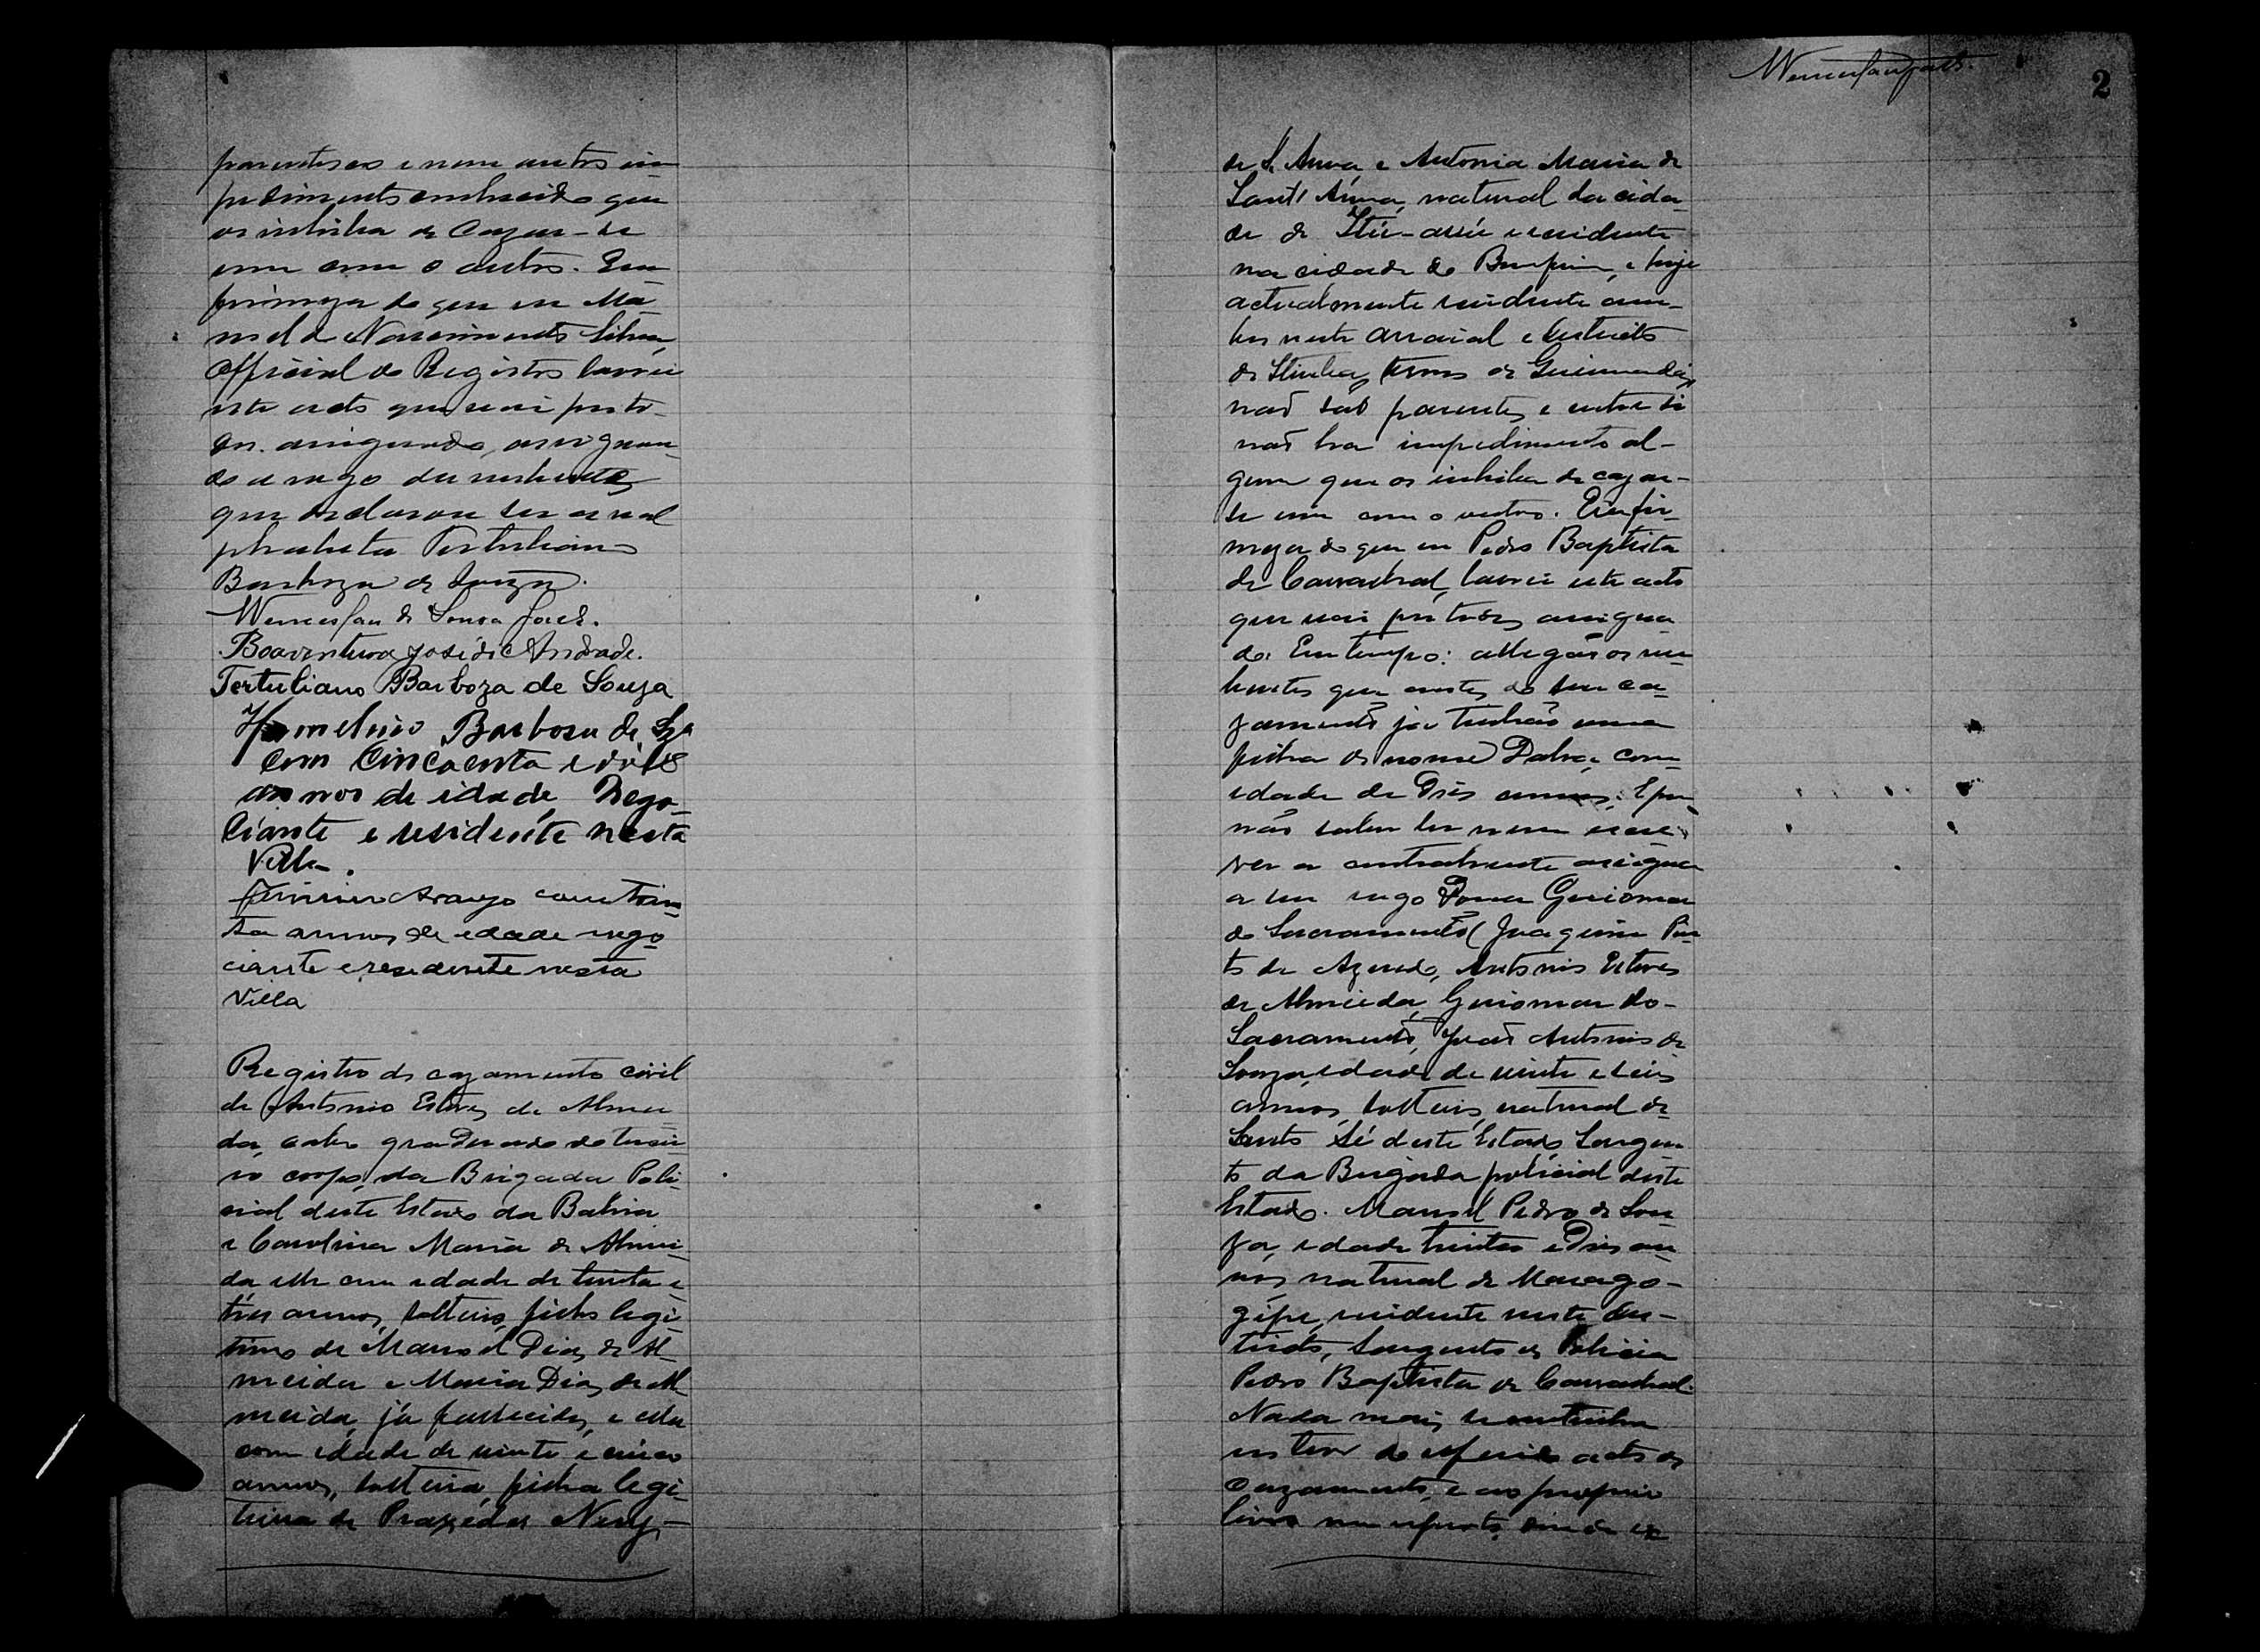 parentesco e nem outro im-
pedimento conhecido que
os inhiba de cazar-se
um com o outro. Em
firmeza do que eu Ma-
noel do Nascimento Silva,
Official do Registro lavrei
este acto que vai por to-
dos assignado, assignan-
do a rogo da nubente
que declarou ser anal
phabeta Tertuliano
Barboza de Souza.
Wenceslau de Souza
Boaventura José de Andrade.
Tertuliano Barboza de Souza
Barbosa de Sza
com cincoenta e dois
annos de idade, Nego-
ciante e residente nesta
Villa.
Firmino Araujo com trin-
ta annos de idade nego
ciante e residente nesta
Villa
Registro do cazamento civil
de Antonio Esteves de Almei
da, cabo graduado do tercei
ro corpo da Brigada Poli-
cial deste Estado da Bahia
e Carolina Maria de Almei-
da, elle com edade de trinta e
tres annos, solteiro, filho legi-
timo de Manoel Dias de Al-
meida e Maria Dias de Al-
meida, já fallecidos, e ella
com edade de vinte e cinco
annos, solteira, filha legi-
tima de Praxedes Nery
2
de S. Anna e Antonia Maria de
Sant'Anna, natural da cida-
de de Itú-assú e residente
na cidade do Bomfim, e hoje
actualmente residente am-
bos neste arraial e districto
de Itiuba, termo de Queimadas,
não são parentes e entre si
não ha impedimento al-
gum que os inhiba de cazar-
se um com o outro. Em fir-
meza do que eu Pedro Baptista
de Carvalhal, lavrei este acto
que vai por todos assigna-
do. Em tempo: allegão os nu-
bentes que antes do seu ca-
zamento já tinhão uma
filha de nome Dalva, com
edade de tres annos. E por
não saber ler nem escre-
ver a contrahente assigna
a seu rogo Dona Guiomar
do Sacramento (Joaquim Pin
to de Azevedo, Antonio Esteves
de Almeida, Guiomar do
Sacramento, João Antonio de
Souza, edade de vinte e seis
annos, solteiro, natural de
Santo Sé deste Estado, Sargen-
to da Brigada policial deste
Estado. Manoel Pedro de Sou-
za, edade trinta e tres an-
nos, natural de Marago-
gipe, residente neste dis-
tricto, Sargento de Policia
Pedro Baptista de Carvalhal.
Nada mais se continha
em teor do referido acto de
cazamento, e ao proprio
livro me reporto, donde ex